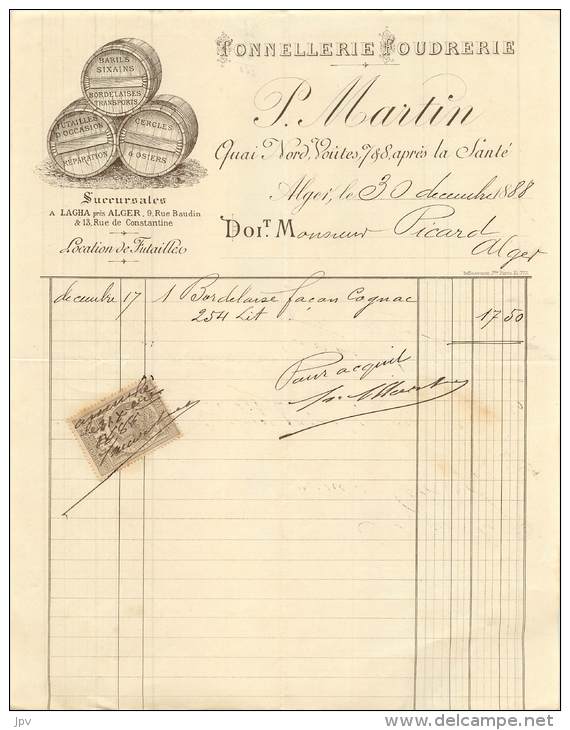 TONNELLERIE FOUDRERIE
BARILS
SIXAINS
BORDELAISES
TRANSPORTS
FUTAILLES
D'OCCASION
RÉPARATION
CERCLES
& OSIERS
P. Martin
Quai Nord, Voûtes, 7 & 8, après la Santé
Succursales
A LAGHA près ALGER, 9, Rue Baudin
& 13, Rue de Constantine
Location de Futailles
Alger, le 30 decembre 1888
DOIT Monsieur Picard
Alger
decembre 17 1 Bordelaise façon Cognac
254 Lit 17 50
Pour acquit
delcampe.net
jpv